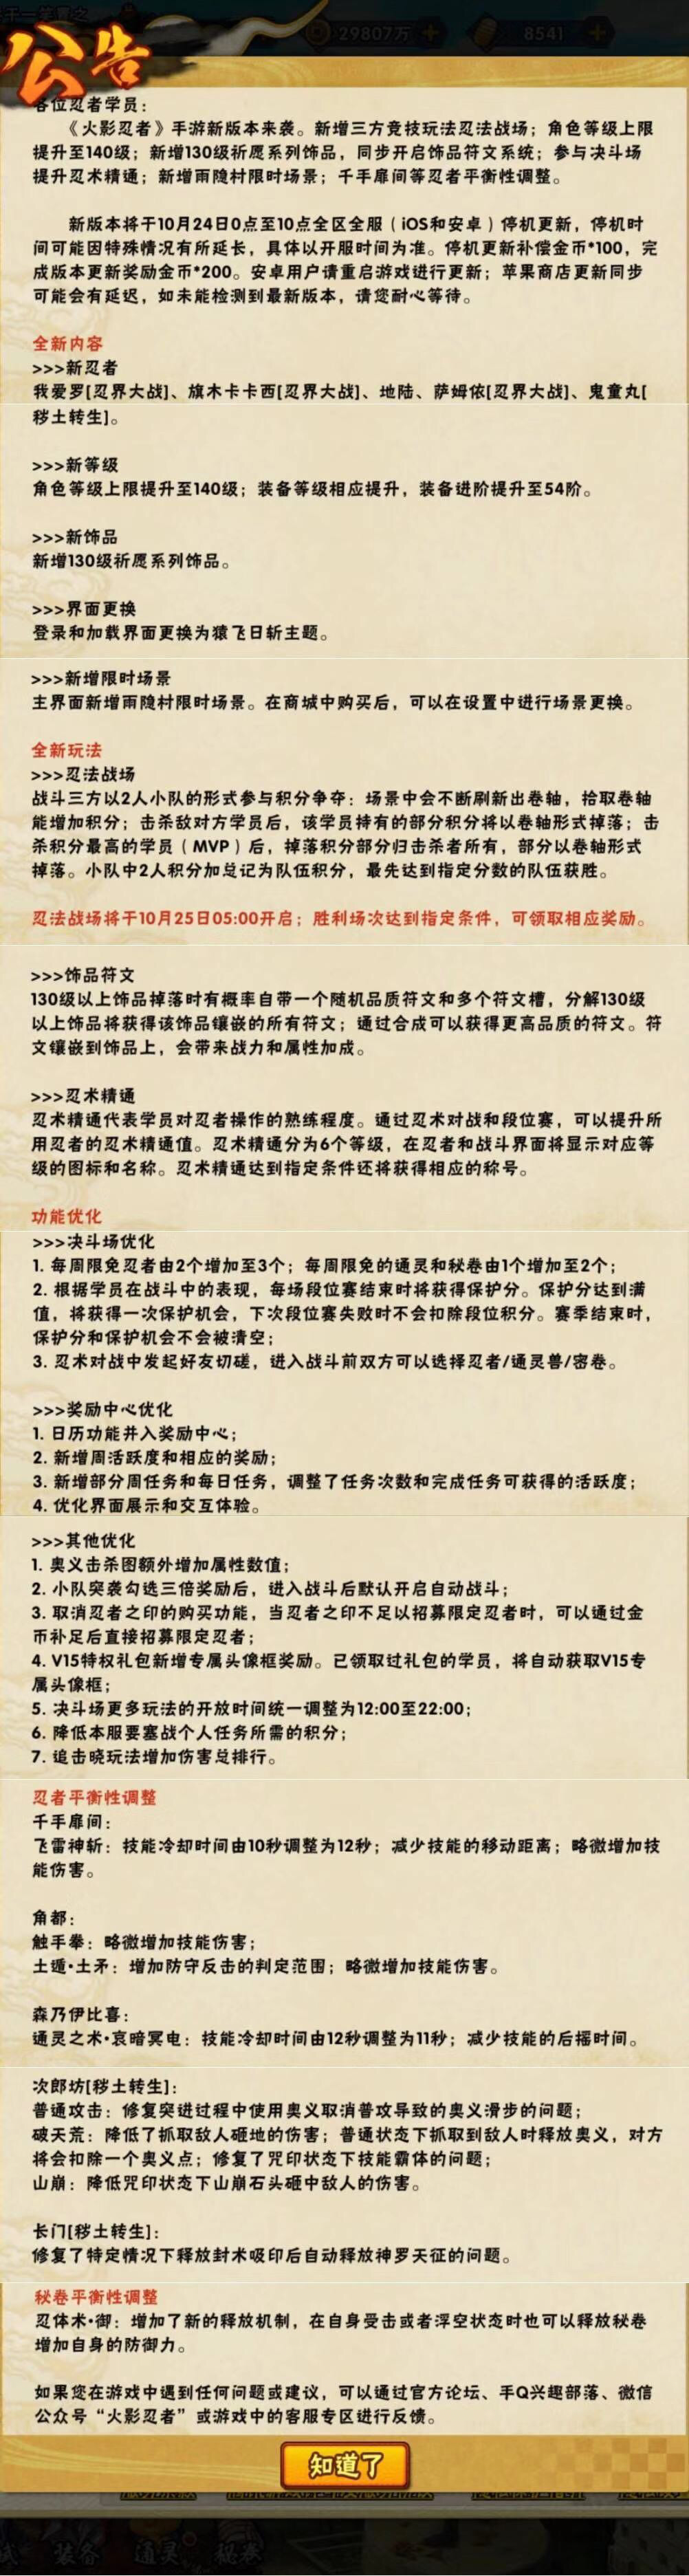 29807万
8541
公告
各位忍者学员：
《火影忍者》手游新版本来袭。新增三方竞技玩法忍法战场；角色等级上限
提升至140级；新增130级祈愿系列饰品，同步开启饰品符文系统；参与决斗场
提升忍术精通；新增雨隐村限时场景；千手扉间等忍者平衡性调整。
新版本将于10月24日0点至10点全区全服（iOS和安卓）停机更新，停机时
间可能因特殊情况有所延长，具体以开服时间为准。停机更新补偿金币*100，完
成版本更新奖励金币*200。安卓用户请重启游戏进行更新；苹果商店更新同步
可能会有延迟，如未能检测到最新版本，请您耐心等待。
全新内容
>>>新忍者
我爱罗[忍界大战]、旗木卡卡西[忍界大战]、地陆、萨姆依[忍界大战]、鬼童丸[
秽土转生]。
>>>新等级
角色等级上限提升至140级；装备等级相应提升，装备进阶提升至54阶。
>>>新饰品
新增130级祈愿系列饰品。
>>>界面更换
登录和加载界面更换为猿飞日斩主题。
>>>新增限时场景
主界面新增雨隐村限时场景。在商城中购买后，可以在设置中进行场景更换。
全新玩法
>>>忍法战场
战斗三方以2人小队的形式参与积分争夺：场景中会不断刷新出卷轴，拾取卷轴
能增加积分；击杀敌对方学员后，该学员持有的部分积分将以卷轴形式掉落；击
杀积分最高的学员（MVP）后，掉落积分部分归击杀者所有，部分以卷轴形式
掉落。小队中2人积分加总记为队伍积分，最先达到指定分数的队伍获胜。
忍法战场将于10月25日05:00开启；胜利场次达到指定条件，可领取相应奖励。
>>>饰品符文
130级以上饰品掉落时有概率自带一个随机品质符文和多个符文槽，分解130级
以上饰品将获得该饰品镶嵌的所有符文；通过合成可以获得更高品质的符文。符
文镶嵌到饰品上，会带来战力和属性加成。
>>>忍术精通
忍术精通代表学员对忍者操作的熟练程度。通过忍术对战和段位赛，可以提升所
用忍者的忍术精通值。忍术精通分为6个等级，在忍者和战斗界面将显示对应等
级的图标和名称。忍术精通达到指定条件还将获得相应的称号。
功能优化
>>>决斗场优化
1. 每周限免忍者由2个增加至3个；每周限免的通灵和秘卷由1个增加至2个；
2. 根据学员在战斗中的表现，每场段位赛结束时将获得保护分。保护分达到满
值，将获得一次保护机会，下次段位赛失败时不会扣除段位积分。赛季结束时，
保护分和保护机会不会被清空；
3. 忍术对战中发起好友切磋，进入战斗前双方可以选择忍者/通灵兽/密卷。
>>>奖励中心优化
1. 日历功能并入奖励中心；
2. 新增周活跃度和相应的奖励；
3. 新增部分周任务和每日任务，调整了任务次数和完成任务可获得的活跃度；
4. 优化界面展示和交互体验。
>>>其他优化
1. 奥义击杀图额外增加属性数值；
2. 小队突袭勾选三倍奖励后，进入战斗后默认开启自动战斗；
3. 取消忍者之印的购买功能，当忍者之印不足以招募限定忍者时，可以通过金
币补足后直接招募限定忍者；
4. V15特权礼包新增专属头像框奖励。已领取过礼包的学员，将自动获取V15专
属头像框；
5. 决斗场更多玩法的开放时间统一调整为12:00至22:00；
6. 降低本服要塞战个人任务所需的积分；
7. 追击晓玩法增加伤害总排行。
忍者平衡性调整
千手扉间：
飞雷神斩：技能冷却时间由10秒调整为12秒；减少技能的移动距离；略微增加技
能伤害。
角都：
触手拳：略微增加技能伤害；
土遁·土矛：增加防守反击的判定范围；略微增加技能伤害。
森乃伊比喜：
通灵之术·哀暗冥电：技能冷却时间由12秒调整为11秒；减少技能的后摇时间。
次郎坊[秽土转生]：
普通攻击：修复突进过程中使用奥义取消普攻导致的奥义滑步的问题；
破天荒：降低了抓取敌人砸地的伤害；普通状态下抓取到敌人时释放奥义，对方
将会扣除一个奥义点；修复了咒印状态下技能霸体的问题；
山崩：降低咒印状态下山崩石头砸中敌人的伤害。
长门[秽土转生]：
修复了特定情况下释放封术吸印后自动释放神罗天征的问题。
秘卷平衡性调整
忍体术·御：增加了新的释放机制，在自身受击或者浮空状态时也可以释放秘卷
增加自身的防御力。
如果您在游戏中遇到任何问题或建议，可以通过官方论坛、手Q兴趣部落、微信
公众号“火影忍者”或游戏中的客服专区进行反馈。
知道了
装备 通灵 秘卷